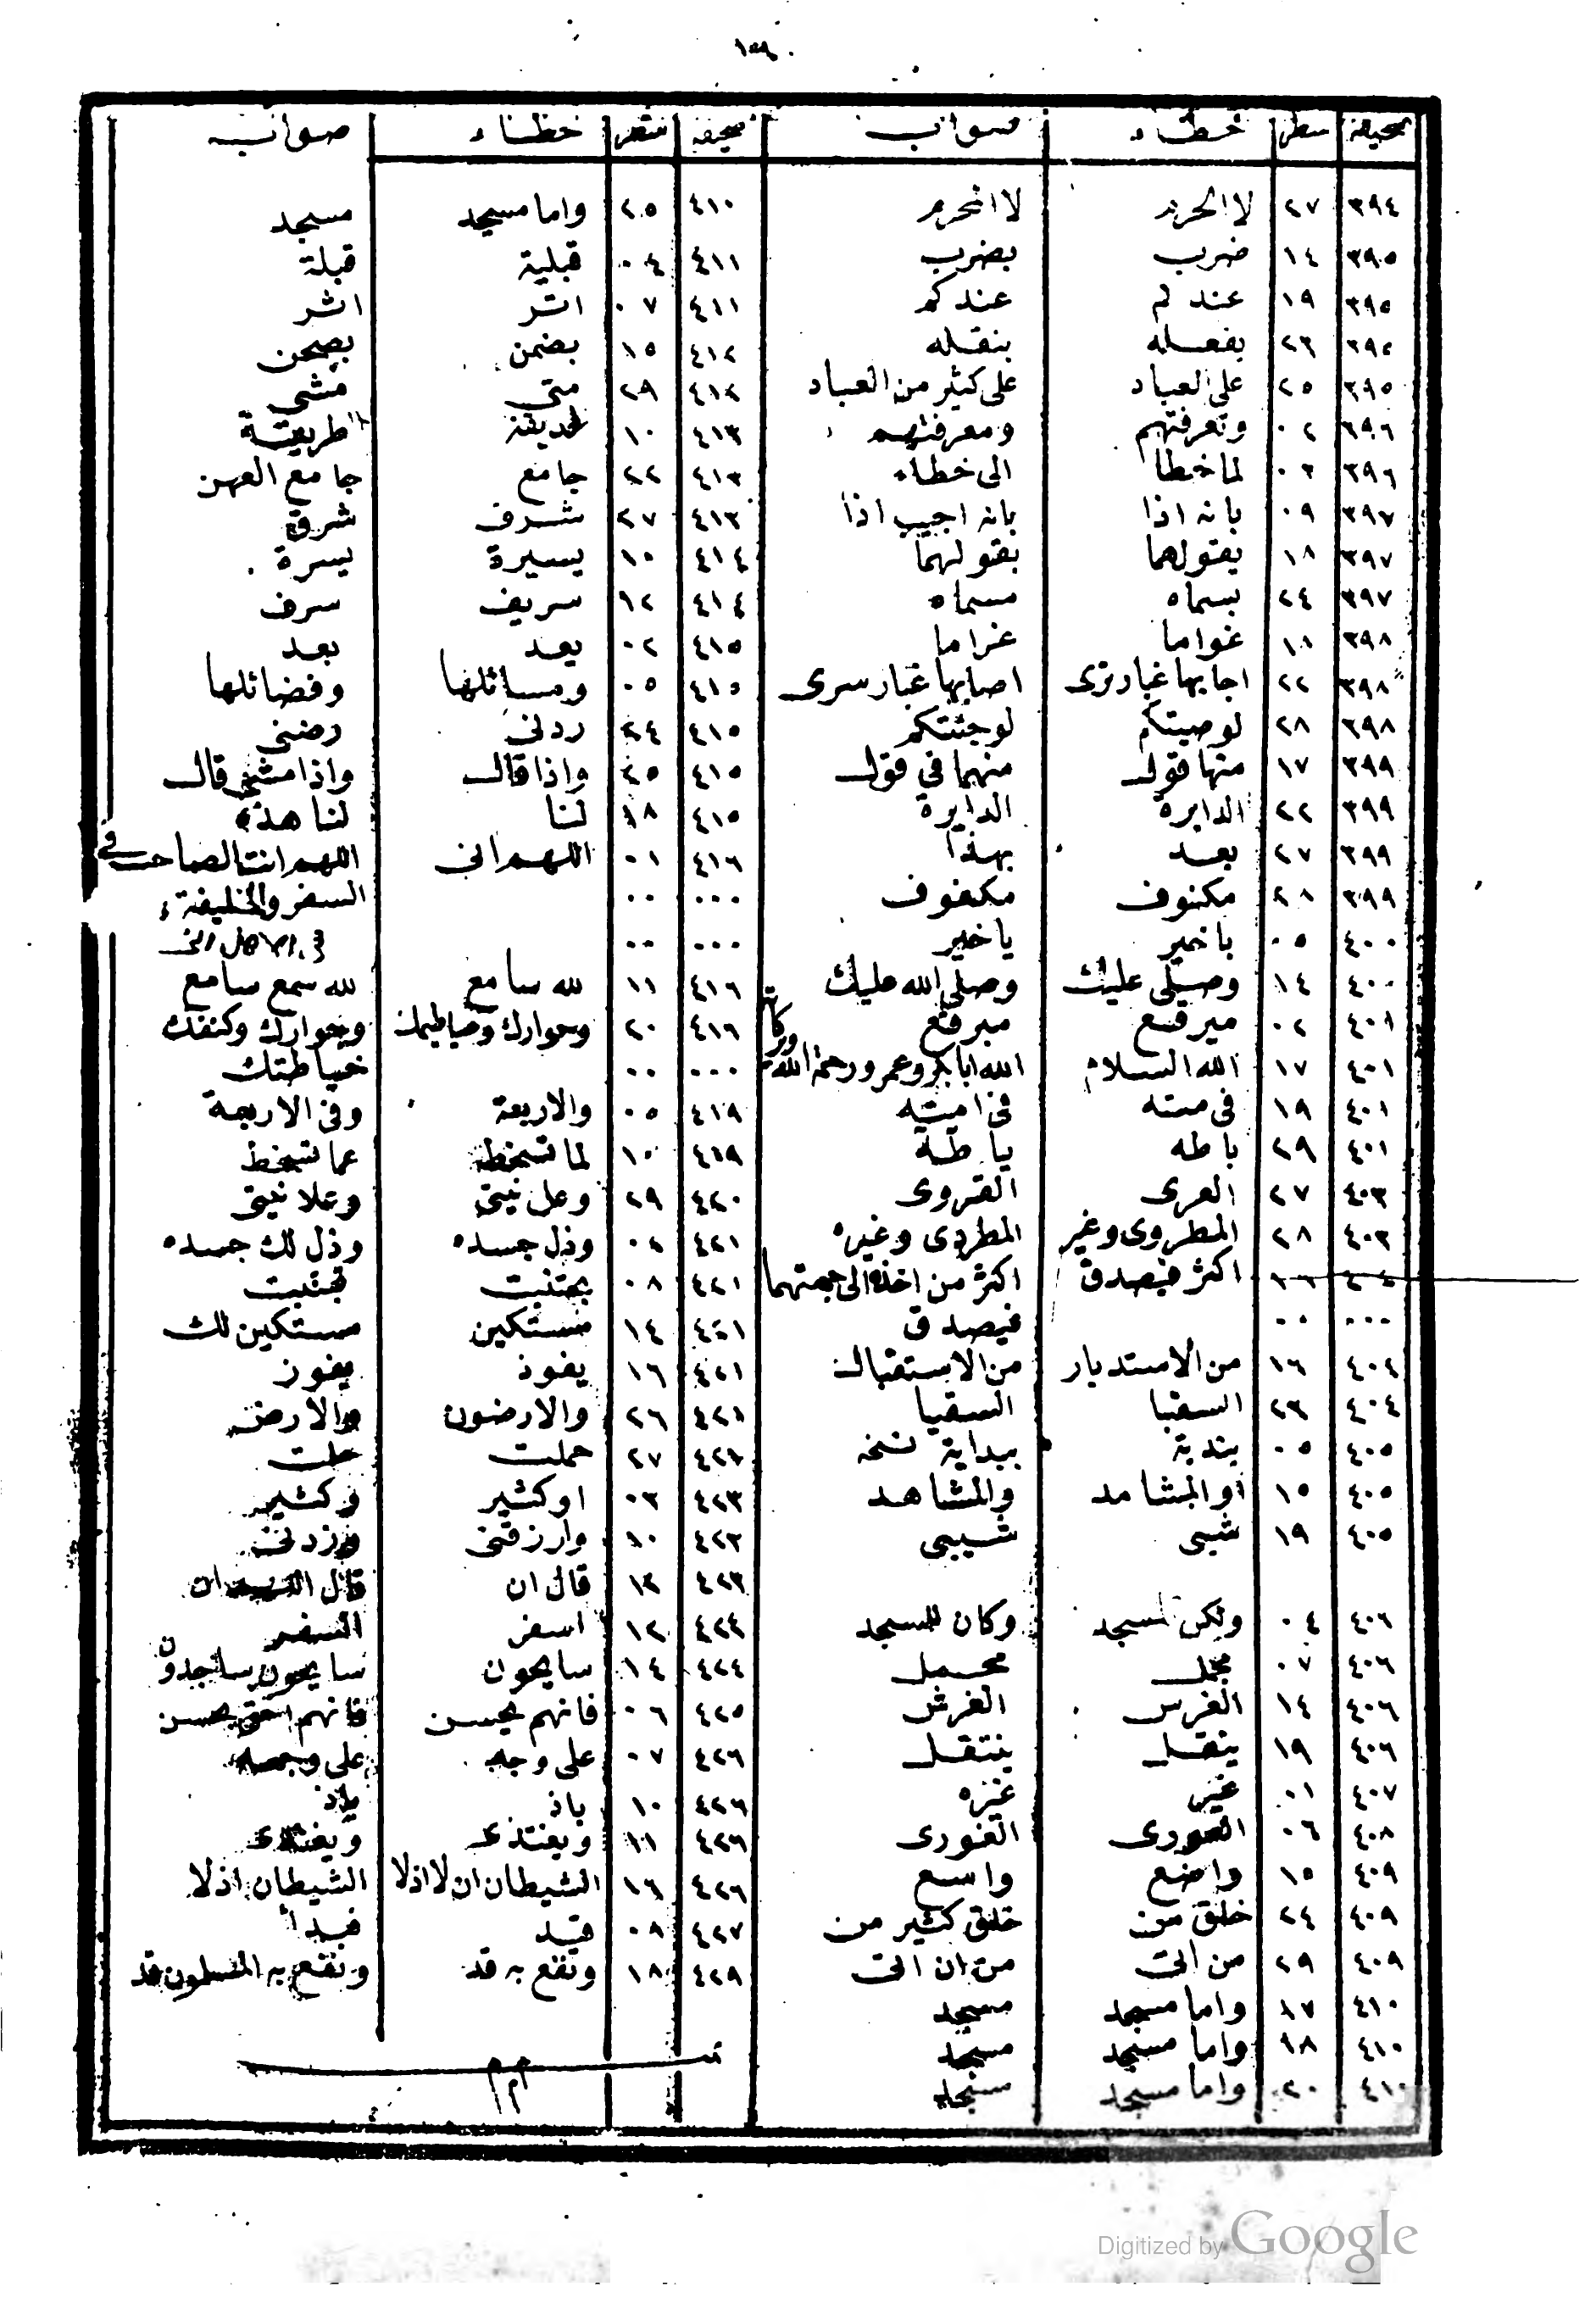 صحيفة سطر خطاء صواب
٣٩٤ ٢٧ لا الحرم لا المحرم
٣٩٥ ١٤ ضرب بضرب
٣٩٥ ١٩ عند لم عندكم
٣٩٥ ٢٣ بفعله بنقله
٣٩٥ ٢٥ على العباد على كثير من العباد
٣٩٦ ٠٢ وتعرفتهم ومعرفتهم
٣٩٦ ٠٣ لما خطا الى خطاء
٣٩٧ ٠٩ بانه اذا بانه اجيب اذا
٣٩٧ ١٨ يقولهما بقولهما
٣٩٧ ٢٤ بسماه مسماه
٣٩٨ ١٨ غواما غراما
٣٩٨ ٢٢ اجابها غبار نرى اصابها غبار سرى
٣٩٨ ٢٨ لوصيتكم لوجئتكم
٣٩٩ ١٧ منها قول منهما في قول
٣٩٩ ٢٢ الدابره الدايرة
٣٩٩ ٢٧ بعد بهذا
٣٩٩ ٢٨ مكنوف مكفوف
٤٠٠ ٠٥ باخير ياخير
٤٠٠ ١٤ وصلى عليك وصلى الله عليك
٤٠١ ٠٢ ميرقع مبرقع
٤٠١ ١٧ الله السلام الله ابابكر وعمر ورحمة الله وبركاته
٤٠١ ١٩ في مته في امته
٤٠١ ٢٩ باطه ياطه
٤٠٣ ٢٧ العرى القروى
٤٠٣ ٢٨ المطروى وغير المطردى وغيره
اكثر فيصدق اكثر من اخذه الى جهتهما
٠٠٠ ٠٠ فيصدق
٤٠٤ ١٦ من الاستدبار من الاستقبال
٤٠٤ ٢٣ السقبا السقيا
٤٠٥ ٠٥ بندبة ببداية نسخه
٤٠٥ ١٥ او المشامد والمشاهد
٤٠٥ ١٩ شبى شيبى
٤٠٦ ٠٤ ولكن لمسجد وكان المسجد
٤٠٦ ٠٧ مجمل محمل
٤٠٦ ١٤ الفرس الفرش
٤٠٦ ١٩ ينقل ينتقل
٤٠٧ ٠١ غير غزه
٤٠٨ ٠٦ الغورى
٤٠٩ ١٥ واضع واسع
٤٠٩ ٢٤ خلق من خلق كثير من
٤٠٩ ٢٩ من التى من ان التى
٤١٠ ١٧ واما مسجد مسجد
٤١٠ ١٨ واما مسجد مسجد
٤١٠ ٢٠ واما مسجد مسجد
صحيفه سطر خطاء صواب
٤١٠ ٢٥ واما مسجد مسجد
٤١١ ٠٤ قبلية قبلة
٤١١ ٠٧ اتر اثر
٤١٢ ١٥ بضمن بصحن
٤١٢ ٢٩ متى مشى
٤١٣ ١٠ لحديقة الطريقة
٤١٣ ٢٢ جامع جامع العهن
٤١٣ ٢٧ شرف شرق
٤١٤ ١٠ يسيرة يسرة
٤١٤ ١٢ سريف سرف
٤١٥ ٠٢ يعد بعد
٤١٥ ٠٥ ومسائلها وفضائلها
٤١٥ ٢٤ ردنى رضنى
٤١٥ ٢٥ واذا قال واذا مشى قال
٤١٥ ١٨ لنا لنا هذه
٤١٦ ٠١ اللهم انى اللهم انت الصاحب في
٠٠٠ ٠٠ السفر والخليفة
٠٠٠ ٠٠ في الاهل انى
٤١٦ ١١ لله سامع لله سمع سامع
٤١٦ ٢٠ وجوارك وجوارك وكنفك
٠٠٠ ٠٠
٤١٩ ٠٥ والاربعة وفي الاربعة
٤١٩ ١٠ لما تسخطه عما تسخط
٤٢٠ ٢٩ وعل نيتى وعلا نيتى
٤٢١ وذل جسده وذل لك جسده
٤٢١ ٠٨ يجتنبت تجنبت
٤٢١ ١٤ مستكين مستكين لك
٤٢١ ١٦ يفوذ يفوز
٤٢١ ٢٦ والارضون والارض
٢٧ حملت حلت
٤٢٣ ٠٣ اوكثير وكثير
٤٢٣ ١٠ وارزقنى وزدنى
٤٢٣ ١٢ قال ان
٤٢٤ ١٢ اسفر السفر
٤٢٤ ١٤ سايحون سايحون ساجدون
٤٢٥ ٠٦ فانهم يحبسن
٤٢٦ ٠٧ على وجه
٤٢٦ ١٠ باذ
٤٢٦ ١١ ويغتذى
٤٢٦ ١٦ الشيطان ان لا اذلا الشيطان اذلا
٤٢٧ ٠٨ قيد فبدأ
٤٢٩ ١٨ ونفع به قد ونفع به المسلمون قد
تم
Digitized by Google